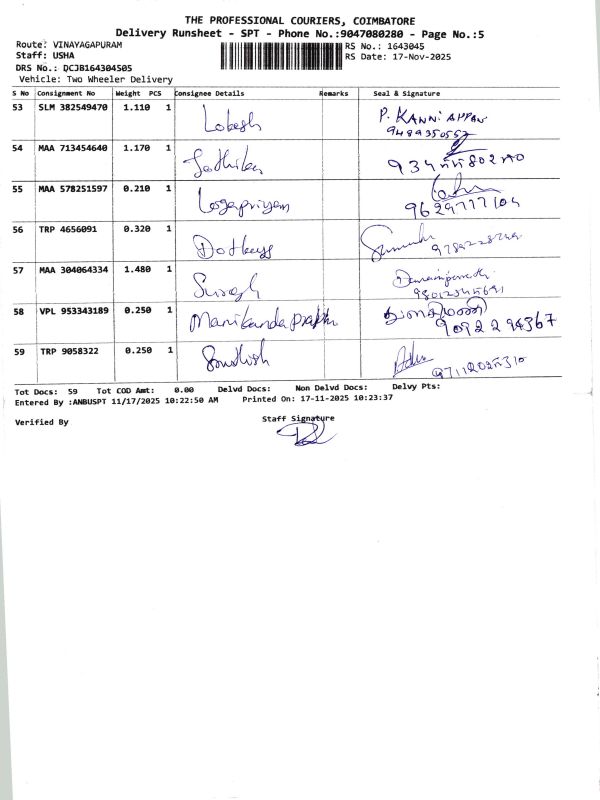 THE PROFESSIONAL COURIERS, COIMBATORE
Delivery Runsheet - SPT - Phone No.:9047080280 - Page No.:5
Route: VINAYAGAPURAM RS No.: 1643045
Staff: USHA RS Date: 17-Nov-2025
DRS No.: DCJB164304505
Vehicle: Two Wheeler Delivery
S No Consignment No Weight PCS Consignee Details Remarks Seal & Signature
53 SLM 382549470 1.110 1 Lokesh P. KANNIAPPAN
9489350557
54 MAA 713454640 1.170 1
55 MAA 578251597 0.210 1 Logapriyan
9629777104
56 TRP 4656091 0.320 1 Dotkeys
57 MAA 304064334 1.480 1
58 VPL 953343189 0.250 1 Manikanda prabhu
9092294367
59 TRP 9058322 0.250 1
Tot Docs: 59 Tot COD Amt: 0.00 Delvd Docs: Non Delvd Docs: Delvy Pts:
Entered By :ANBUSPT 11/17/2025 10:22:50 AM Printed On: 17-11-2025 10:23:37
Verified By Staff Signature